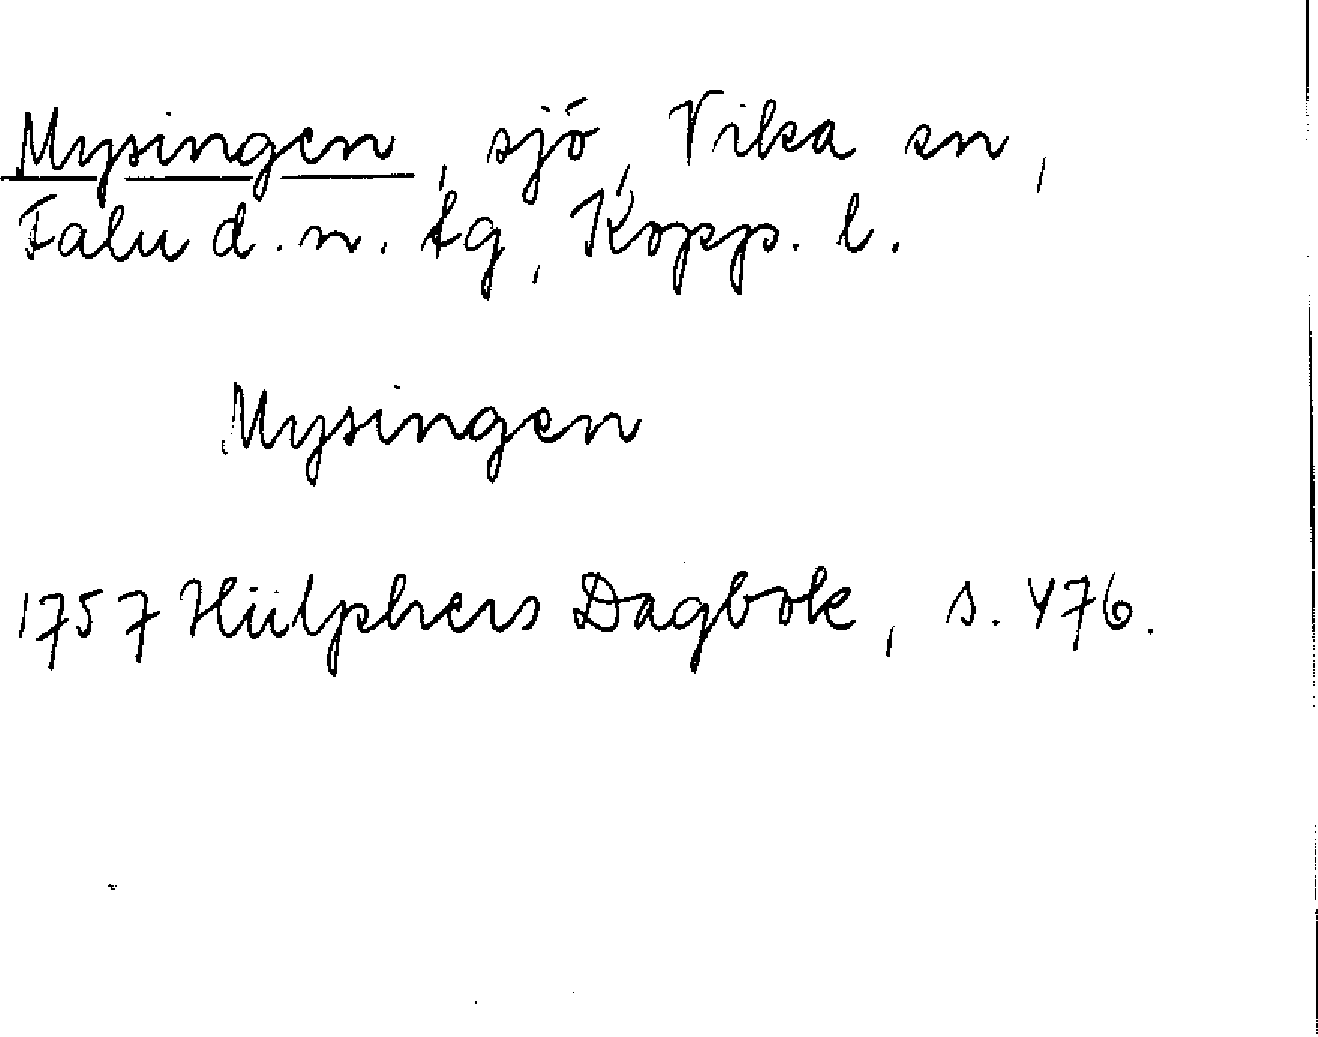 Mysingen, sjö, Vika sn,
Falu d.n. tg, Kopp. l.
Mysingen
1757 Hülphers Dagbok, s. 476.